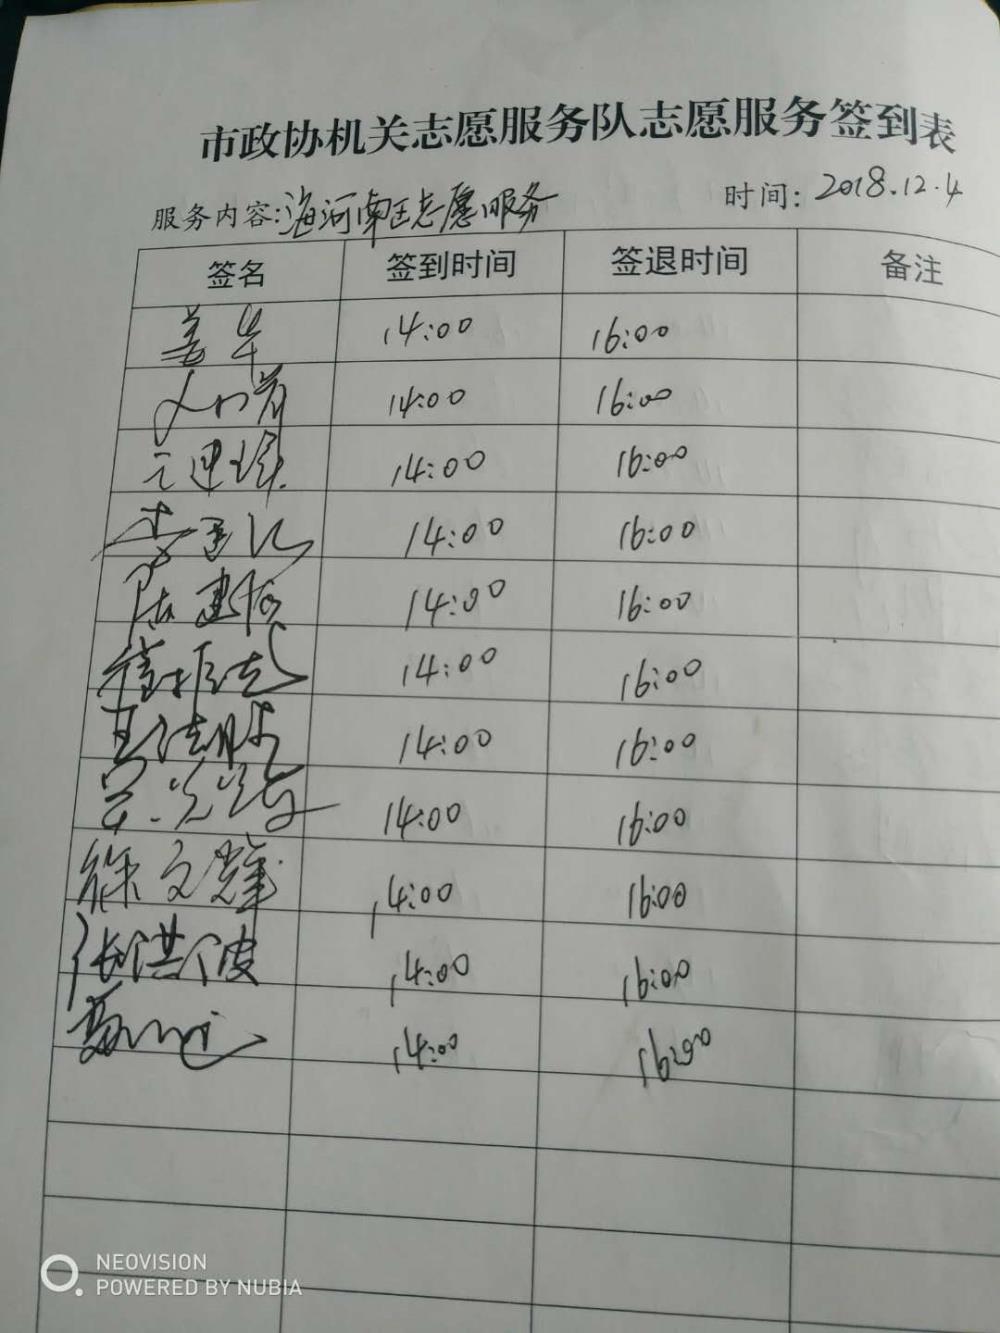 市政协机关志愿服务队志愿服务签到表
服务内容:海河南区志愿服务 时间: 2018.12.4
签名 签到时间 签退时间 备注
姜华 14:00 16:00
14:00 16:00
14:00 16:00
14:00 16:00
14:00 16:00
14:00 16:00
14:00 16:00
14:00 16:00
徐文辉 14:00 16:00
张洪波 14:00 16:00
14:00 16:00
NEOVISION
POWERED BY NUBIA